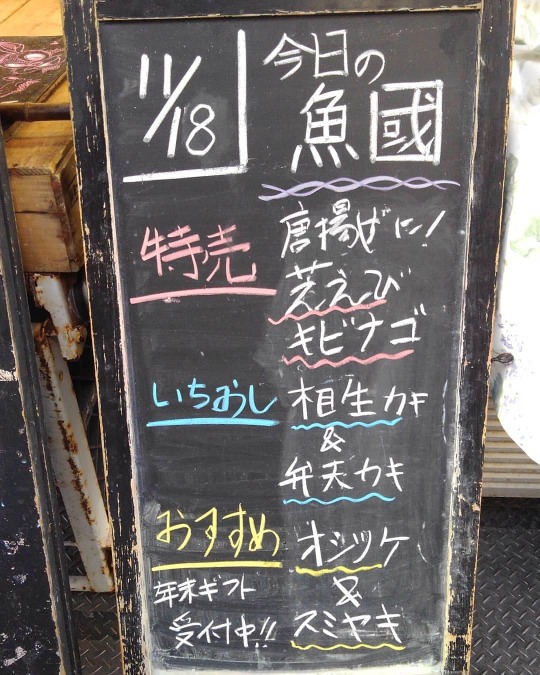 11/18
今日の
魚國
特売
唐揚げに!
芝えび
キビナゴ
いちおし
相生カキ
&
弁天カキ
おすすめ
オシツケ
&
スミヤキ
年末ギフト
受付中!!